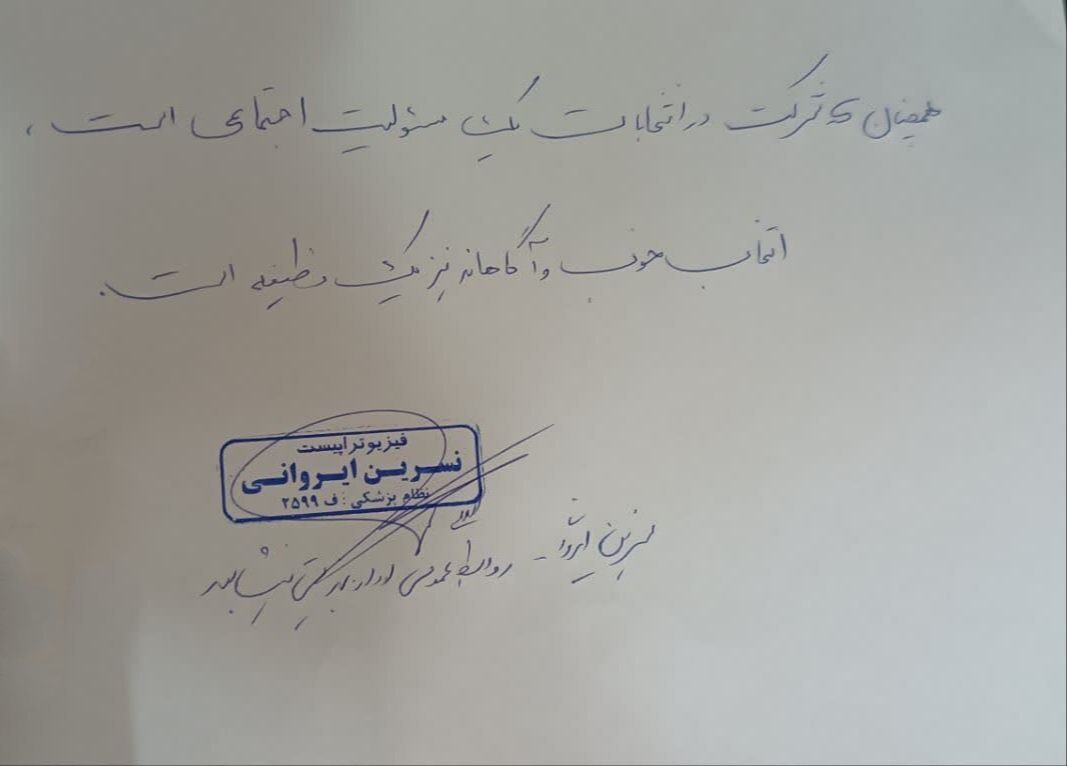 همچنان که شرکت در انتخابات یک مسئولیت اجتماعی است،
انتخاب خوب و آگاهانه نیز یک وظیفه است.
فیزیوتراپیست
نسرین ایروانی
نظام پزشکی : ف ۲۵۹۹
نسرین ایروانی - روابط عمومی اداره بهزیستی نیشابور